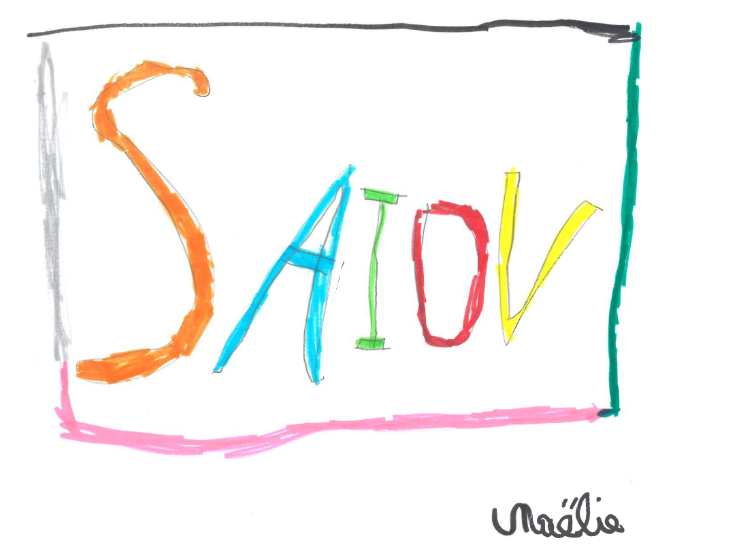 SAIOV
Maëlie